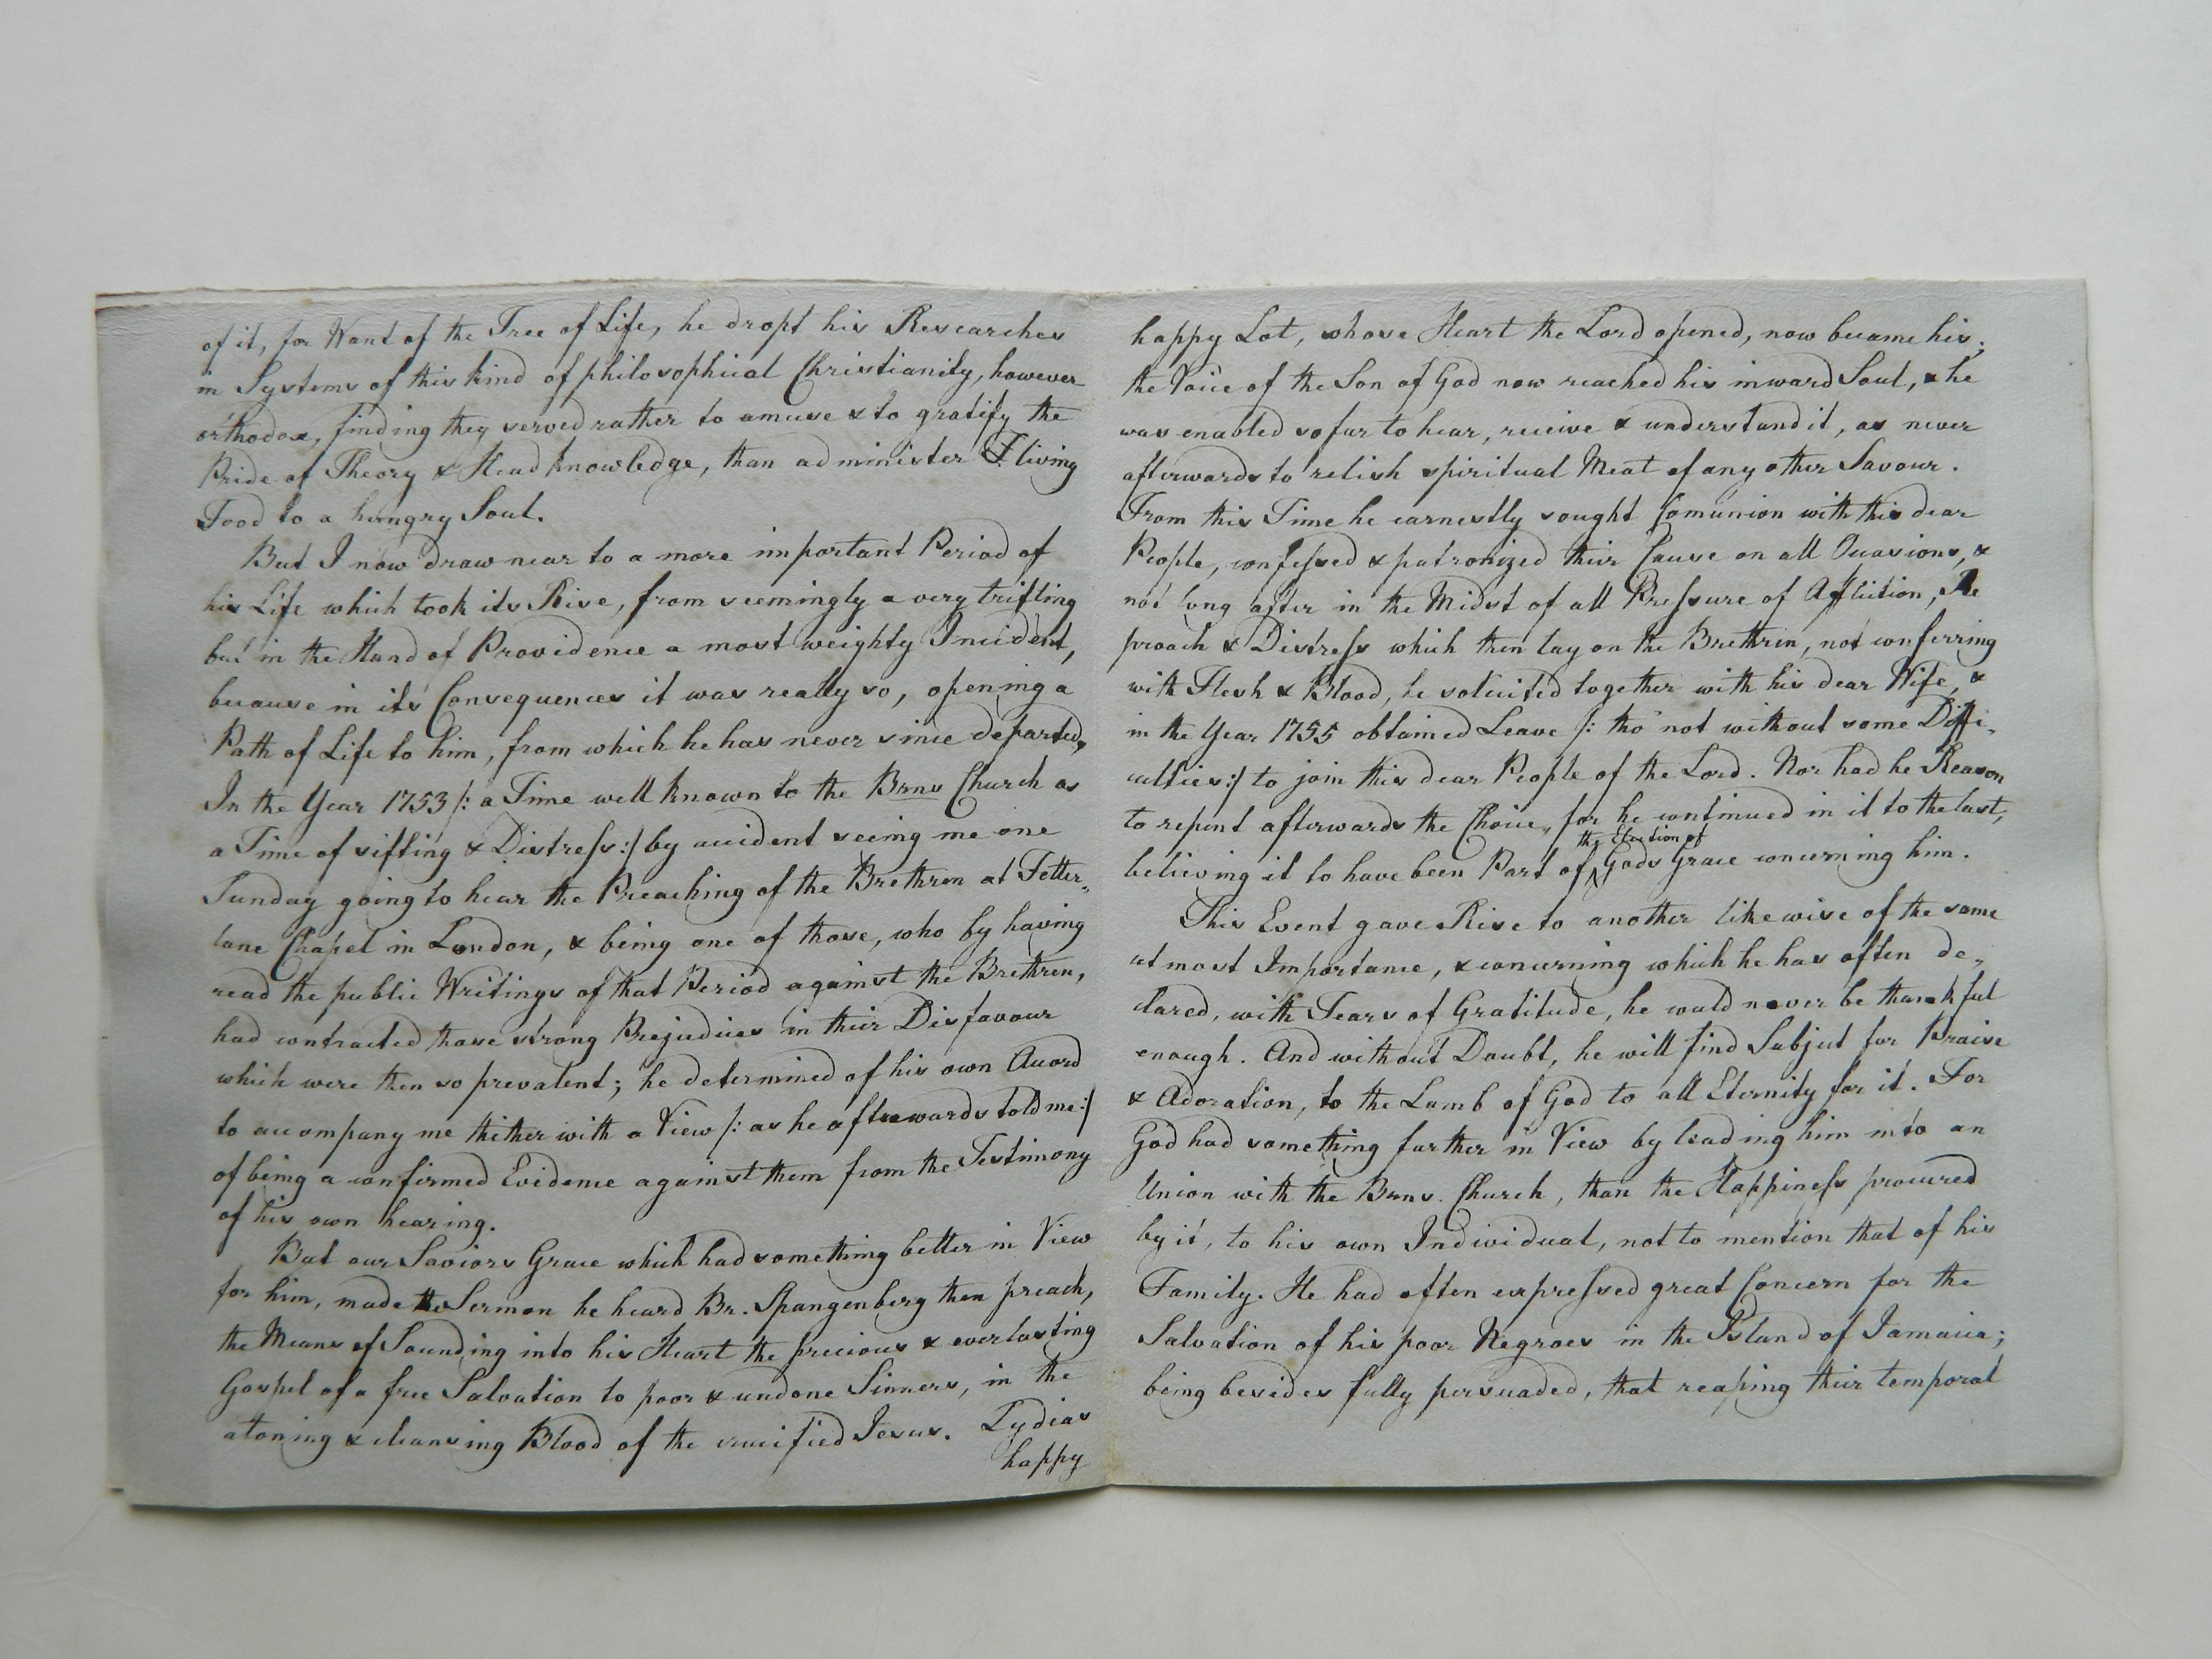 of it, for Want of the Tree of Life, he dropt his Researches
in Systems of this kind of philosophical Christianity, however
orthodox, finding they served rather to amuse & to gratify the
Pride of Theory & Head knowledge, than administer living
Food to a hungry Soul.
But I now draw near to a more important Period of
his Life which took its Rise, from seemingly a very trifling
but in the Hand of Providence a most weighty Incident,
because in its Consequences it was really so, opening a
Path of Life to him, from which he has never since departed,
In the Year 1753 /: a Time well known to the Brns Church as
a Time of sifting & Distress :/ by accident seeing me one
Sunday going to hear the Preaching of the Brethren at Fetter-
lane Chapel in London, & being one of those, who by having
read the public Writings of that Period against the Brethren,
had contracted those strong Prejudices in their Disfavour
which were then so prevalent; he determined of his own Accord
to accompany me thither with a View /: as he afterwards told me :/
of being a confirmed Evidence against them from the Testimony
of his own hearing.
But our Saviors Grace which had something better in View
for him, made the Sermon he heard Br. Spangenberg then preach,
the Means of Sounding into his Heart the precious & everlasting
Gospel of a free Salvation to poor & undone Sinners, in the
atoning & cleansing Blood of the crucified Jesus. Lydias
happy
happy Lot, whose Heart the Lord opened, now became his;
the Voice of the Son of God now reached his inward Soul, & he
was enabled so far to hear, receive & understand it, as never
afterwards to relish spiritual Meat of any other Savour.
From this Time he earnestly sought Comunion with this dear
People, confessed & patronized their Cause on all Occasions, &
not long after in the Midst of all Pressure of Affliction, Re
proach & Distress which then lay on the Brethren, not conferring
with Flesh & Blood, he solicited together with his dear Wife, &
in the Year 1755 obtained Leave /: tho' not without some Diffi-
culties :/ to join this dear People of the Lord. Nor had he Reason
to repent afterwards the Choice, for he continued in it to the last,
believing it to have been Part of the Election of Gods Grace concerning him.
This Event gave Rise to another likewise of the same
utmost Importance, & concerning which he has often de-
clared, with Tears of Gratitude, he could never be thankful
enough. And without Doubt, he will find Subject for Praise
& Adoration, to the Lamb of God to all Eternity for it. For
God had something further in View by leading him into an
Union with the Brns. Church, than the Happiness procured
by it, to his own Individual, not to mention that of his
Family. He had often expressed great Concern for the
Salvation of his poor Negroes in the Island of Jamaica;
being besides fully persuaded, that reaping their temporal